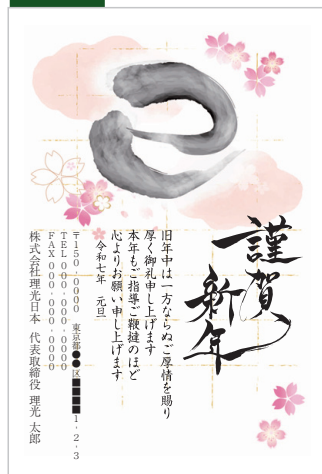 巳
謹賀
新年
旧年中は一方ならぬご厚情を賜り
厚く御礼申し上げます
本年もご指導ご鞭撻のほど
心よりお願い申し上げます
令和七年 元旦
〒150-0000 東京都●●区■■■■1-2-3
TEL000-000-0000
FAX000-000-0000
株式会社理光日本 代表取締役 理光 太郎